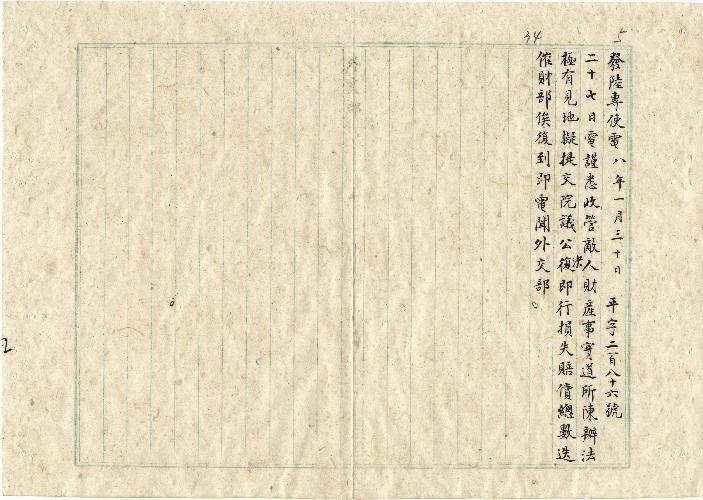 5
34
發陸專使電 八年一月三十日 平字二百八十六號
二十七日電謹悉收管敵人財產事寶道所陳辦法
極有見地擬提交院議公決後即行損失賠償總數迭
催財部俟復到即電聞外交部
外交部
2